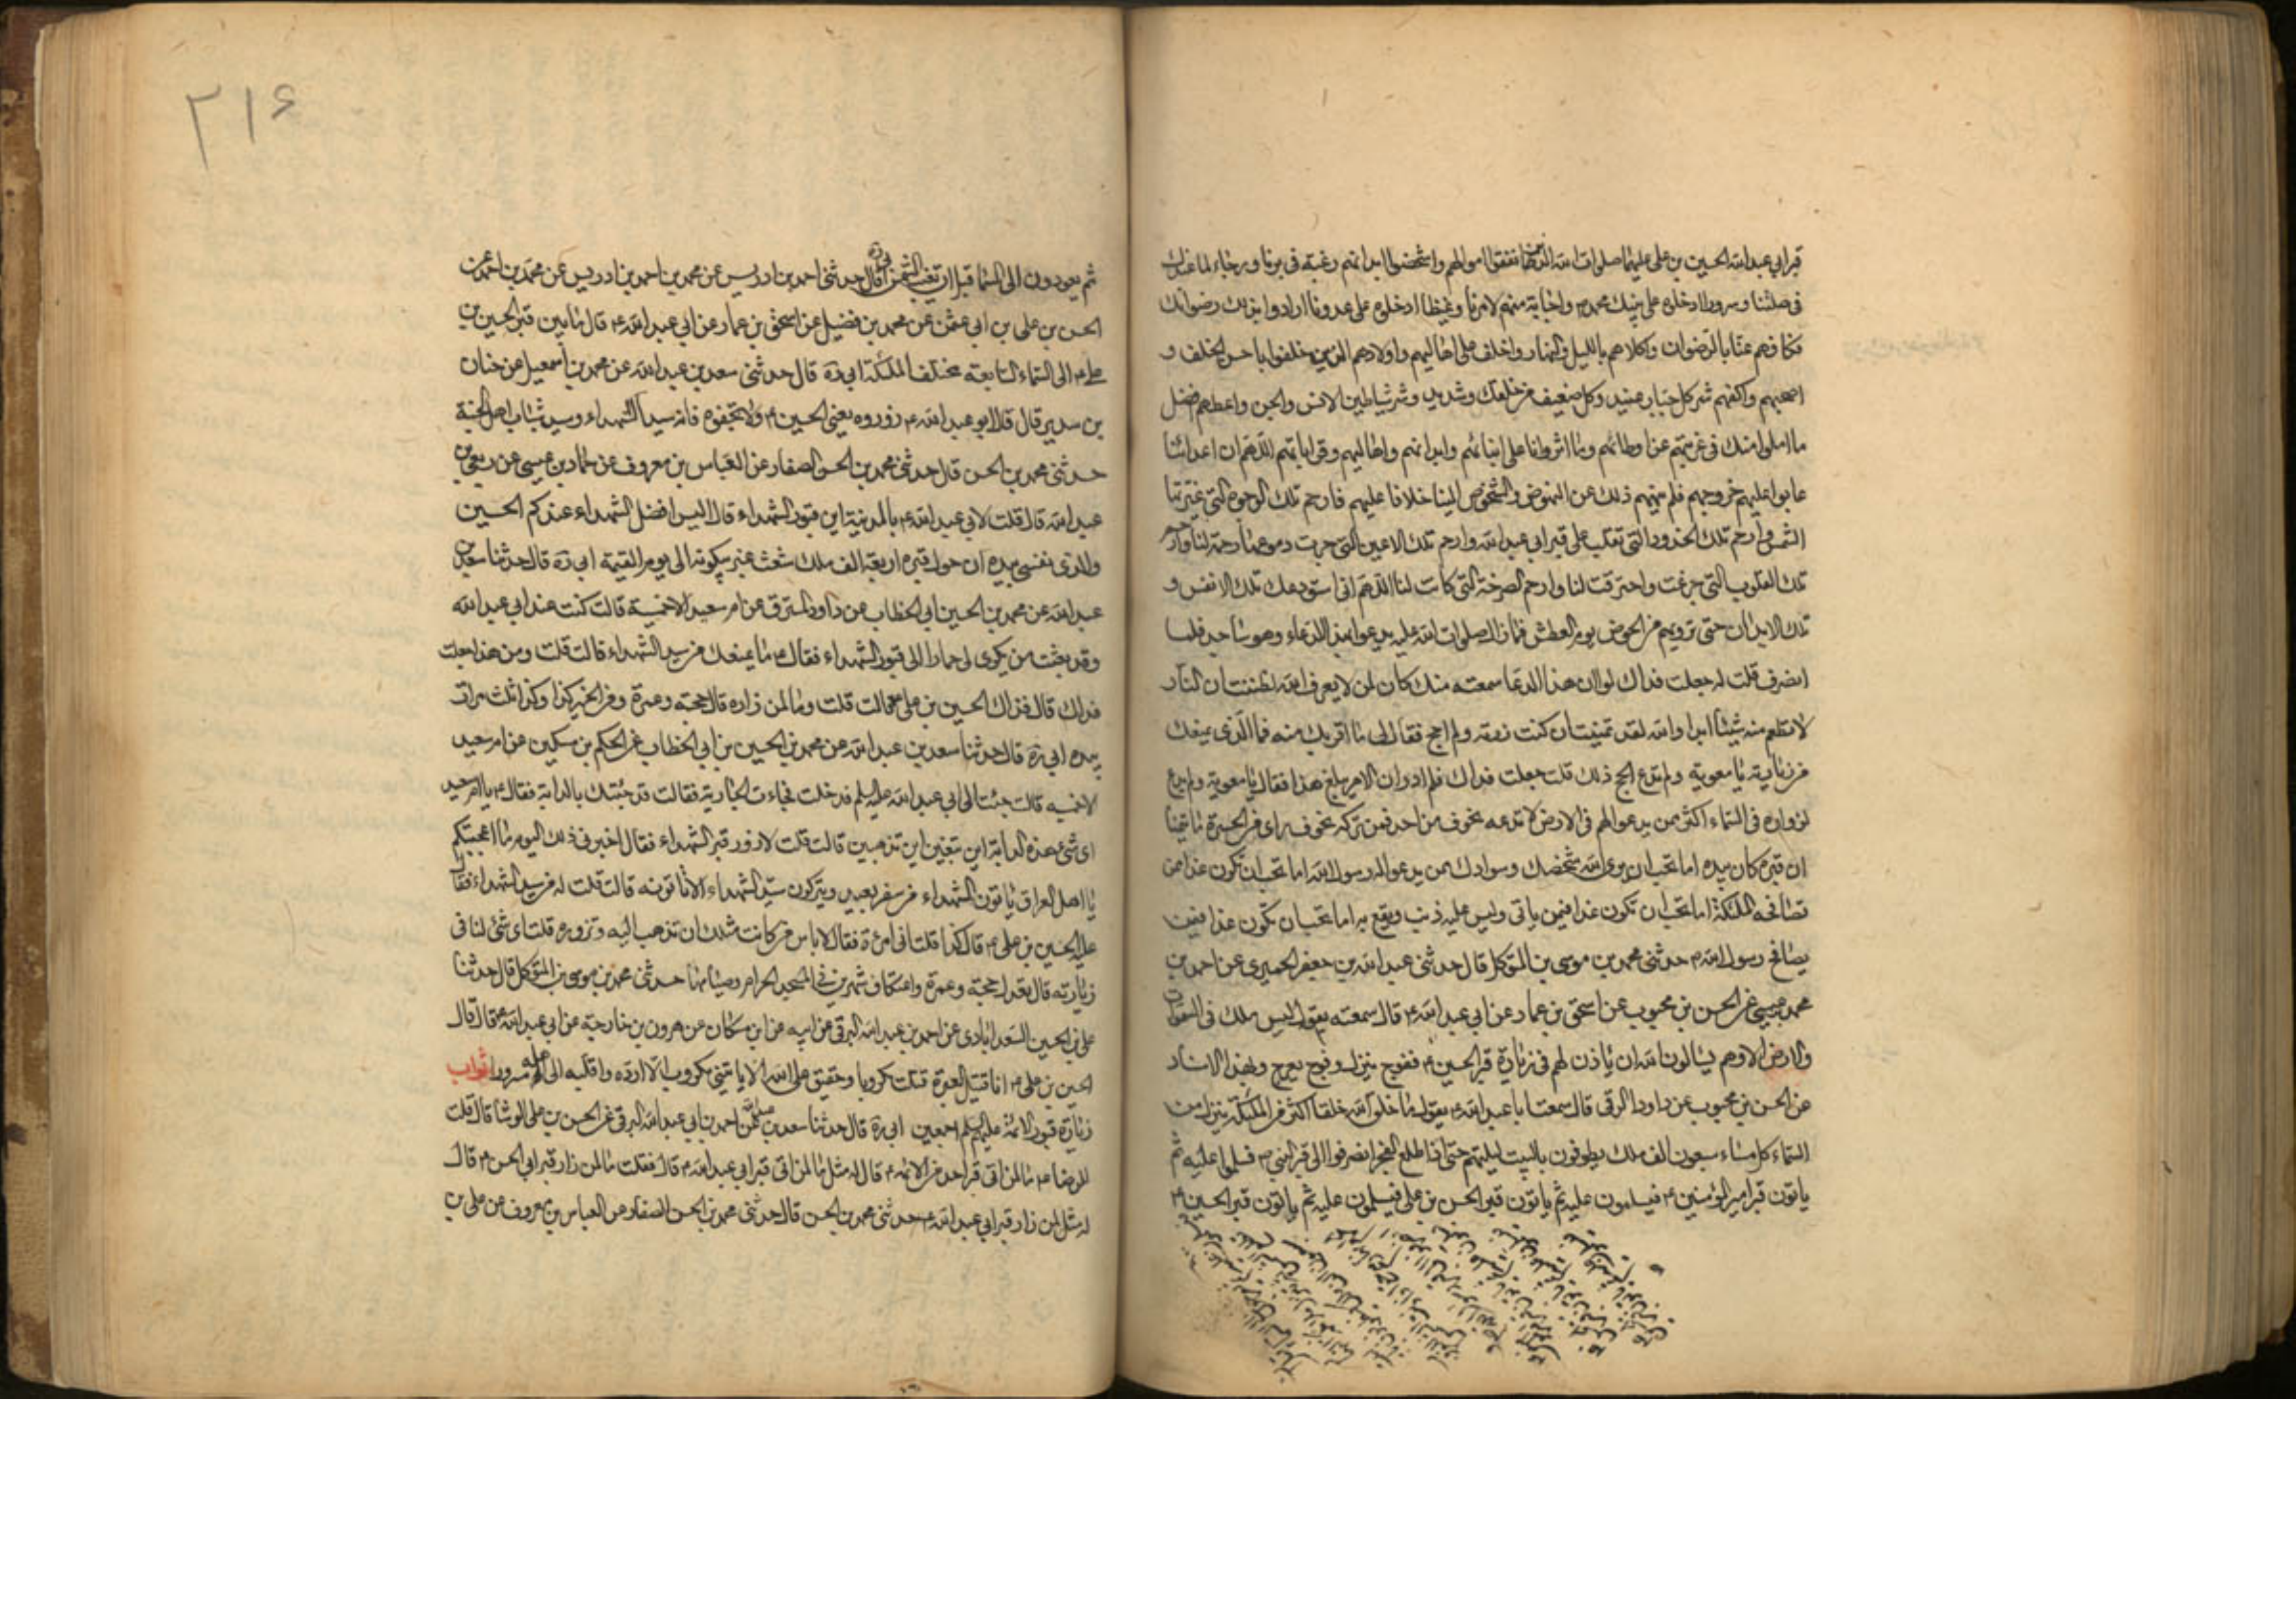 قبر ابي عبد الله الحسين بن علي عليهما صلوات الله الذين انفقوا اموالهم واشخصوا ابدانهم رغبة في برنا ورجاء لما عندك
في صلتنا وسرورا ادخلوه على نبيك محمد ص واجابة منهم لامرنا وغيظا ادخلوه على عدونا ارادوا بذلك رضوانك
فكافهم عنا بالرضوان واكلاهم بالليل والنهار واخلف على اهاليهم واولادهم الذين خلفوا باحسن الخلف و
اصحبهم واكفهم شر كل جبار عنيد وكل ضعيف من خلقك وشديد وشر شياطين الانس والجن واعطهم افضل
ما املوا منك في غربتهم عن اوطانهم وما اثرونا على ابنائهم وابدانهم واهاليهم وقراباتهم اللهم ان اعدائنا
عابوا عليهم خروجهم فلم ينههم ذلك عن النهوض والشخوص الينا خلافا عليهم فارحم تلك الوجوه التي غيرتها
الشمس وارحم تلك الخدود التي تقلب على قبر ابي عبد الله وارحم تلك الاعين التي جرت دموعها رحمة لنا وارحم
تلك القلوب التي جزعت واحترقت لنا وارحم الصرخة التي كانت لنا اللهم اني استودعك تلك الانفس و
تلك الابدان حتى ترويهم من الحوض يوم العطش فما زال صلوات الله عليه يدعو بهذا الدعاء وهو ساجد فلما
انصرف قلت له جعلت فداك لو ان هذا الدعا سمعته منك كان لمن لا يعرف الله لظننت ان النار
لا تطعم منه شيئا ابدا والله لقد تمنيت ان كنت زرته ولم احج فقال لي ما اقربك منه فما الذي يمنعك
من زيارته يا معوية ولم تدع الحج ذلك قلت جعلت فداك فلم ادر ان الامر يبلغ هذا فقال يا معوية ومن يدعو
لزواره في السماء اكثر ممن يدعو لهم في الارض لا تدعه لخوف من احد فمن تركه لخوف راى من الحسرة ما يتمنى
ان قبره كان بيده اما تحب ان يرى الله شخصك وسوادك ممن يدعو له رسول الله اما تحب ان تكون غدا ممن
تصافحه الملئكة اما تحب ان تكون غدا فيمن ياتي وليس عليه ذنب ويتبع به اما تحب ان تكون غدا فيمن
يصافح رسول الله ص حدثني محمد بن موسى بن المتوكل قال حدثني عبد الله بن جعفر الحميري عن احمد بن
محمد بن عيسى عن الحسن بن محبوب عن اسحق بن عمار عن ابي عبد الله ع قال سمعته يقول ليس ملك في السموات
والارض الا وهم يسالون الله ان ياذن لهم في زيارة قبر الحسين ع ففوج ينزل وفوج يعرج وبهذا الاسناد
عن الحسن بن محبوب عن داود الرقي قال سمعت ابا عبد الله ع يقول ما خلق الله خلقا اكثر من الملئكة ينزل من
السماء كل مساء سبعون الف ملك يطوفون بالبيت ليلتهم حتى اذا طلع الفجر انصرفوا الى قبر النبي ص فسلموا عليه ثم
ياتون قبر امير المؤمنين ع فيسلمون عليه ثم ياتون قبر الحسن بن علي فيسلمون عليه ثم ياتون قبر الحسين ع
٢١۶
ثم يعودون الى السما قبل ان تغيب الشمس ابي ره قال حدثني احمد بن ادريس عن محمد بن احمد بن ادريس عن محمد بن احمد عن
الحسن بن علي بن ابي عثمن عن محمد بن فضيل عن اسحق بن عمار عن ابي عبد الله ع قال ما بين قبر الحسين بن
علي ع الى السماء السابعة مختلف الملئكة ابي ره قال حدثني سعد بن عبد الله عن محمد بن اسمعيل عن حنان
بن سدير قال قال ابو عبد الله ع زوروه يعني الحسين ع ولا تجفوه فانه سيد الشهداء وسيد شباب اهل الجنة
حدثني محمد بن الحسن قال حدثني محمد بن الحسن الصفار عن العباس بن معروف عن حماد بن عيسى عن ربعي بن
عبد الله قال قلت لابي عبد الله ع بالمدينة اين قبور الشهداء قال اليس افضل الشهداء عندكم الحسين
والذي نفسي بيده ان حول قبره اربعة الف ملك شعث غبر يبكونه الى يوم القيمة ابي ره قال حدثنا سعد بن
عبد الله عن محمد بن الحسين ابي الخطاب عن داود المسترق عن ام سعيد الاحمسية قالت كنت عند ابي عبد الله
وقد بعثت من يكري لي حمارا الى قبور الشهداء فقال ع ما يمنعك من سيد الشهداء قالت قلت ومن هذا جعلت
فداك قال فذاك الحسين بن علي ع قالت قلت وما لمن زاره قال حجة وعمرة ومن الخير كذا وكذا ثلث مرات
بيده ابي ره قال حدثنا سعد بن عبد الله عن محمد بن الحسين بن ابي الخطاب عن الحكم بن مسكين عن ام سعيد
الاحمسيه قالت جئت الى ابي عبد الله عليه السلم فدخلت فجاءت الجارية فقالت قد جئتك بالدابة فقال ع يا ام سعيد
اي شئ هذه الدابة اين تبغين اين تذهبين قالت قلت لازور قبر الشهداء فقال اخبرني ذلك اليوم ما اعجبكم
يا اهل العراق ياتون الشهداء من سفر بعيد ويتركون سيد الشهداء الا تاتونه قالت قلت له من سيد الشهداء فقال
عليه الحسين بن علي ع قال كذا قلت اني امرءة فقال لا باس من كانت مثلك ان تذهب اليه وتزوره قلت اي شئ لنا في
زيارته قال تعدل حجة وعمرة واعتكاف شهرين في المسجد الحرام وصيامها حدثني محمد بن موسى بن المتوكل قال حدثنا
علي بن الحسين السعد ابادي عن احمد بن عبد الله البرقي عن ابيه عن ابن مسكان عن هرون بن خارجة عن ابي عبد الله ع قال قال
الحسين بن علي ع انا قتيل العبرة قتلت مكروبا وحقيق على الله الا ياتيني مكروب الا ارده واقلبه الى اهله مسرورا ثواب
زيارة قبور الائمة عليهم السلم اجمعين ابي ره قال حدثنا سعد بن عبد الله عن احمد بن ابي عبد الله البرقي عن الحسن بن علي الوشا قال قلت
للرضا ع ما لمن اتى قبر احد من الائمة ع قال له مثل ما لمن اتى قبر ابي عبد الله ع قال فقلت ما لمن زار قبر ابي الحسن ع قال
له مثل لمن زار قبر ابي عبد الله ع حدثني محمد بن الحسن قال حدثني محمد بن الحسن الصفار عن العباس بن معروف عن علي بن